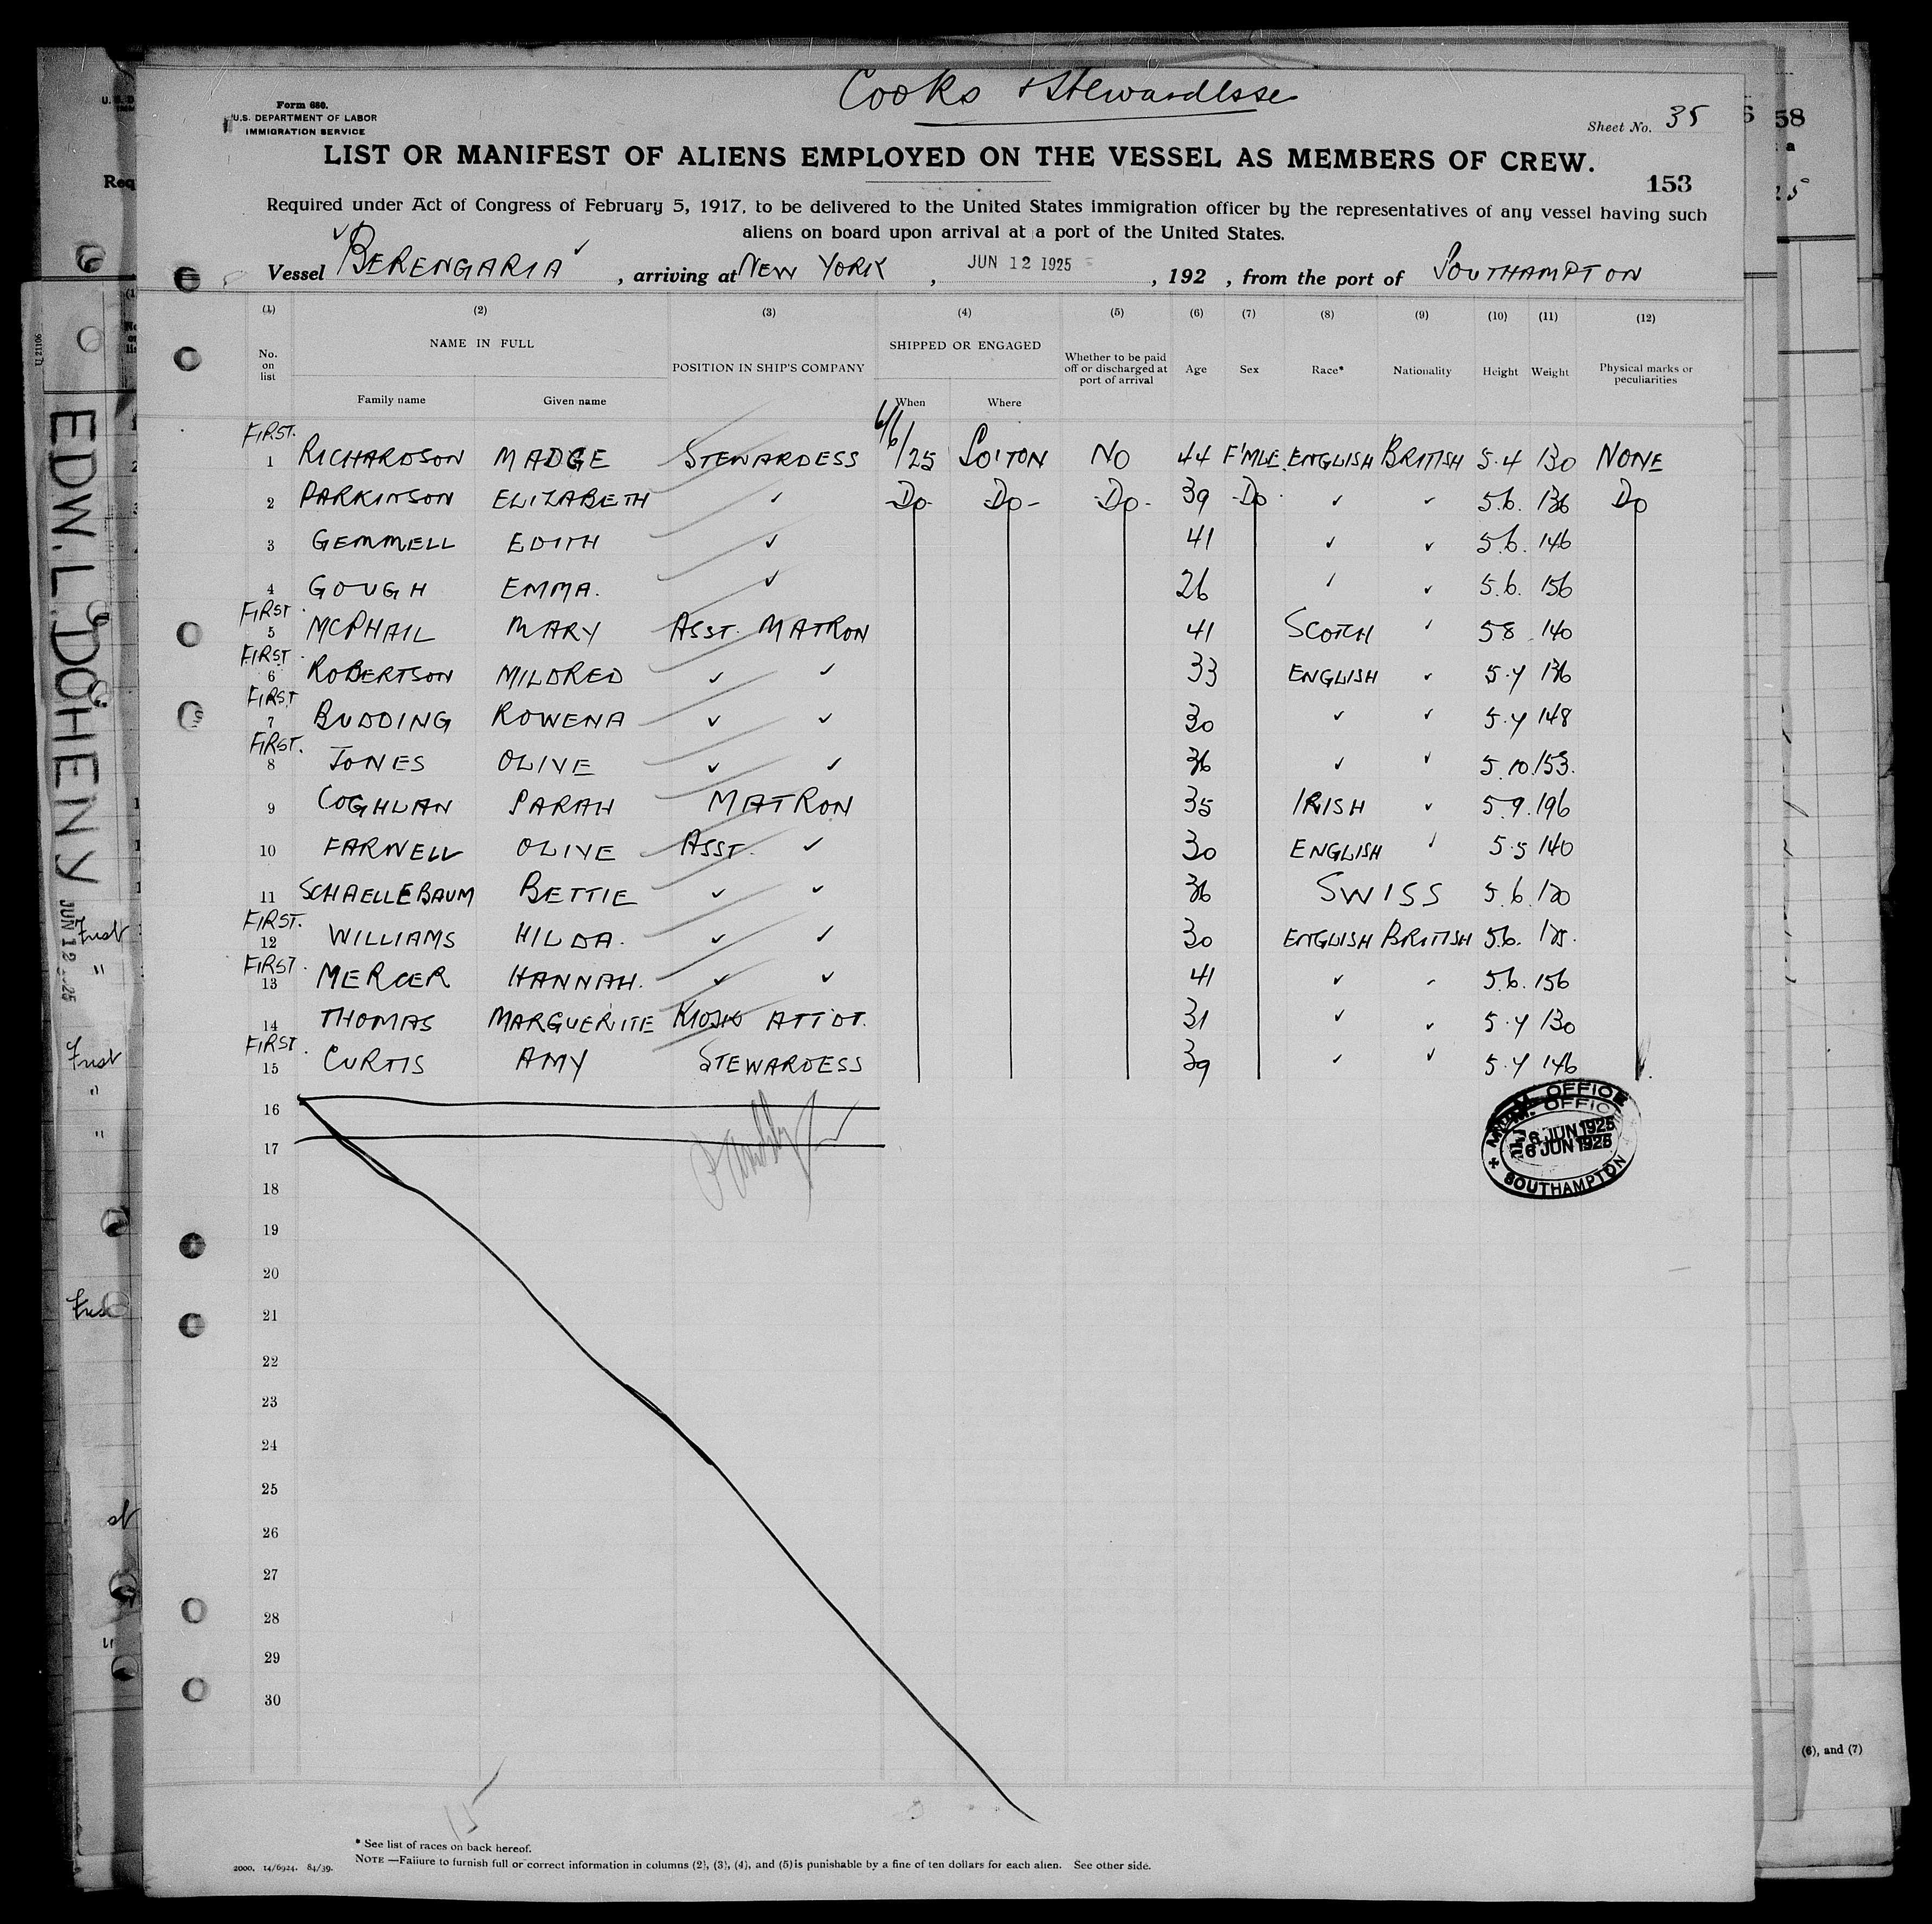 Cooks & Stewardesse
Form 680.
U.S. DEPARTMENT OF LABOR
IMMIGRATION SERVICE
Sheet No. 35
LIST OR MANIFEST OF ALIENS EMPLOYED ON THE VESSEL AS MEMBERS OF CREW.
153
Required under Act of Congress of February 5, 1917, to be delivered to the United States immigration officer by the representatives of any vessel having such
aliens on board upon arrival at a port of the United States.
Vessel BERENGARIA, arriving at NEW YORK, JUN 12 1925, 192 , from the port of SOUTHAMPTON
(1) (2) (3) (4) (5) (6) (7) (8) (9) (10) (11) (12)
No. on list NAME IN FULL POSITION IN SHIP'S COMPANY SHIPPED OR ENGAGED Whether to be paid off or discharged at port of arrival Age Sex Race* Nationality Height Weight Physical marks or peculiarities
Family name Given name When Where
FIRST.
1 RICHARDSON MADGE STEWARDESS 6/6/25 SO'TON NO 44 F'MLE ENGLISH BRITISH 5.4 130 NONE
2 PARKINSON ELIZABETH ✓ -Do- -Do- -Do- 39 -Do- ✓ ✓ 5.6. 136 Do
3 GEMMELL EDITH ✓ 41 ✓ ✓ 5.6. 146
4 GOUGH EMMA. ✓ 26 ✓ ✓ 5.6. 156
FIRST.
5 MCPHAIL MARY ASST. MATRON 41 SCOTCH ✓ 5 8 140
FIRST.
6 ROBERTSON MILDRED ✓ ✓ 33 ENGLISH ✓ 5.4 136
FIRST
7 BUDDING ROWENA ✓ ✓ 30 ✓ ✓ 5.4 148
FIRST.
8 JONES OLIVE ✓ ✓ 36 ✓ ✓ 5.10 153.
9 COGHLAN SARAH MATRON 35 IRISH ✓ 5.9. 196
10 FARWELL OLIVE ASST. ✓ 30 ENGLISH ✓ 5.5 140
11 SCHAELLEBAUM BETTIE ✓ ✓ 36 SWISS 5.6. 120
FIRST.
12 WILLIAMS HILDA. ✓ ✓ 30 ENGLISH BRITISH 5.6. 125.
FIRST.
13 MERCER HANNAH. ✓ ✓ 41 ✓ ✓ 5.6. 156
14 THOMAS MARGUERITE KIOSK ATT'DT. 31 ✓ ✓ 5.4 130
FIRST.
15 CURTIS AMY STEWARDESS 39 ✓ ✓ 5.4 146
16
17
18
19
20
21
22
23
24
25
26
27
28
29
30
OFFICE
6 JUN 1925
SOUTHAMPTON
15
* See list of races on back hereof.
NOTE —Failure to furnish full or correct information in columns (2), (3), (4), and (5) is punishable by a fine of ten dollars for each alien. See other side.
2000. 14/6924. 84/39.
EDW. L. DOHENY
JUN 12 1925
U 21106
Req
First
"
First
"
"
58
(6), and (7)